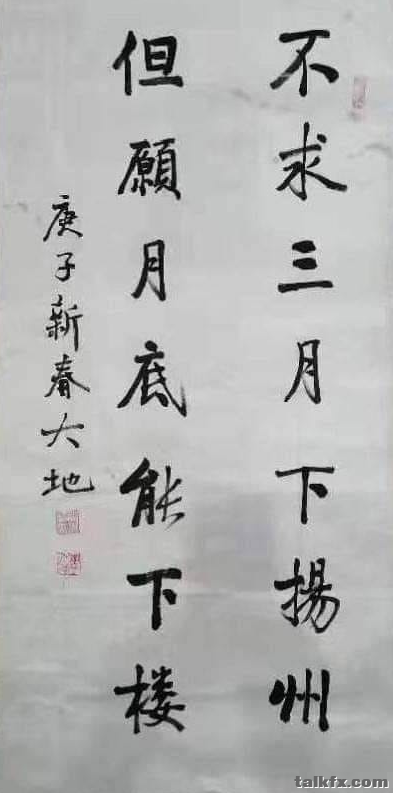 不求三月下揚州
但願月底能下楼
庚子新春大地
talkfx.com